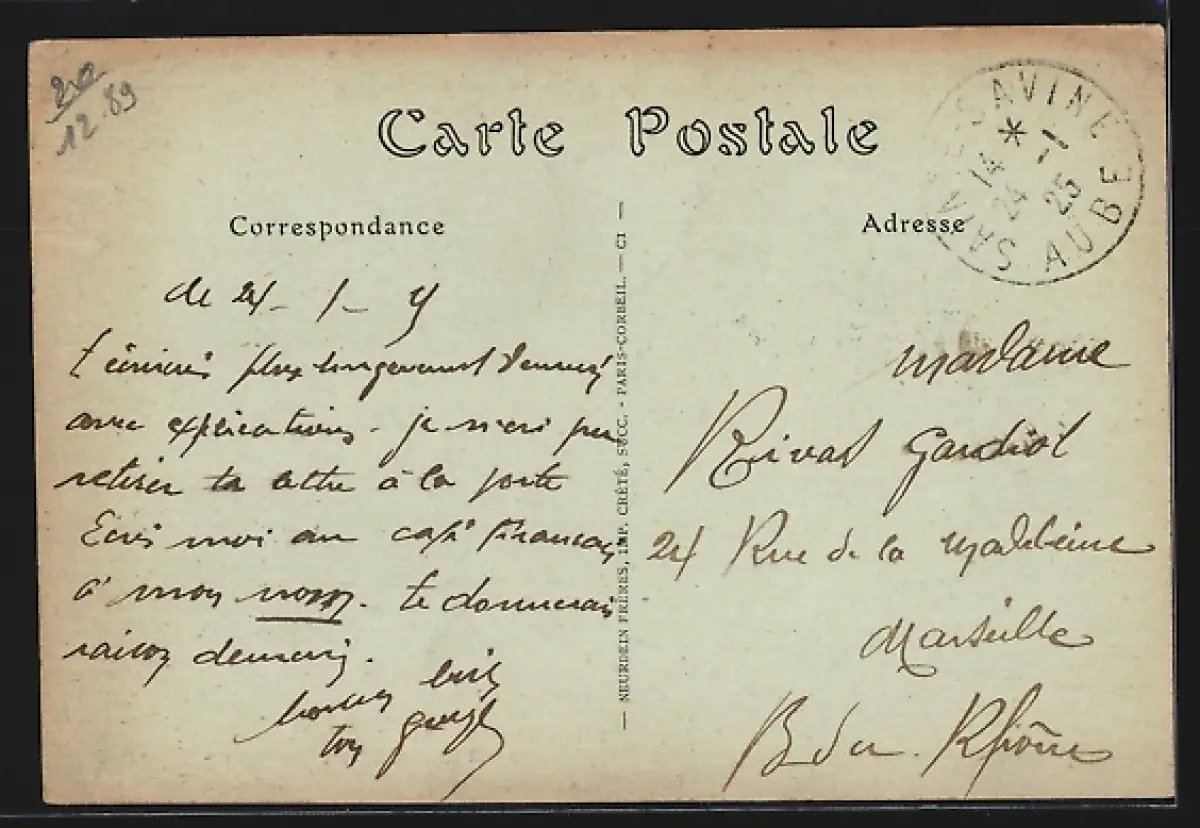 20
12.89
Carte Postale
SAVINE
AUBE
* 14
24 - 1
25
Correspondance
Adresse
de 24 - 1 -
t'écrirai plus longuement demain
avec explications. je n'ai pu
retirer ta lettre à la poste
Ecris moi au café Francais
à mon nom. te donnerai
raison demain.
bons
ton
madame
Rivat Gardiol
24 Rue de la Madeleine
Marseille
B du Rhône
— NEURDEIN FRÈRES, IMP. CRÉTÉ, SUCC. - PARIS-CORBEIL. — CI —